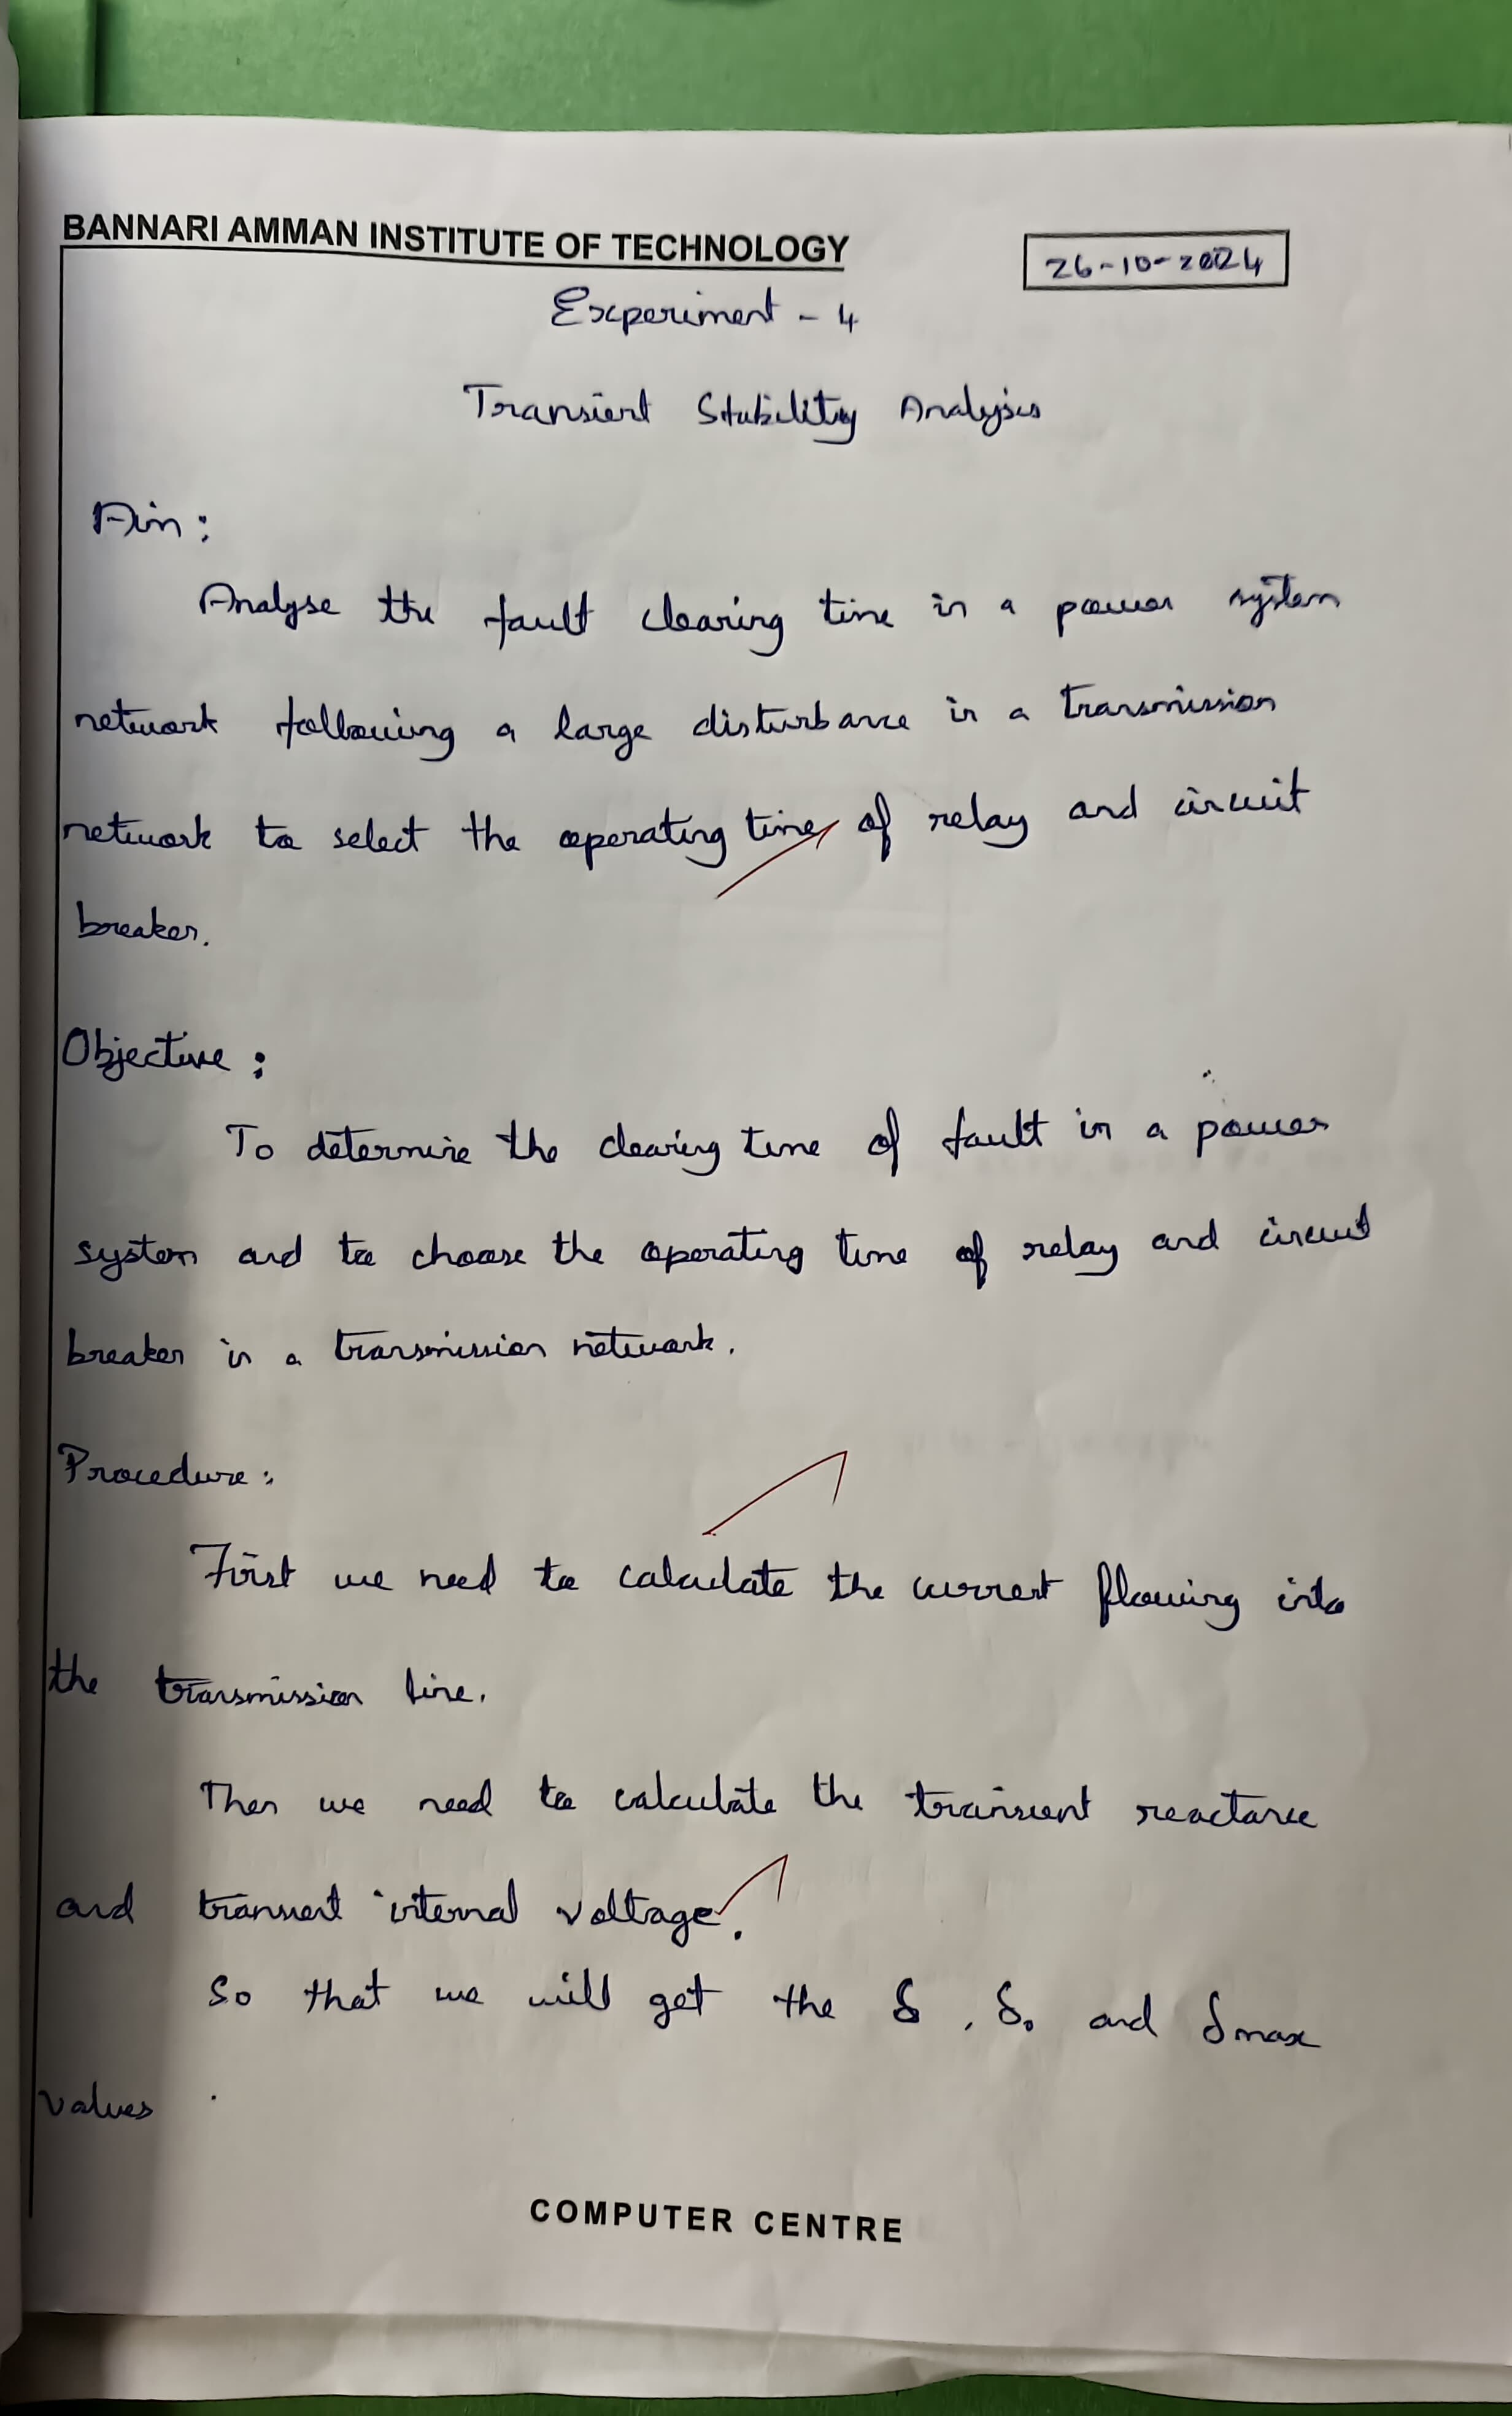 BANNARI AMMAN INSTITUTE OF TECHNOLOGY
26-10-2024
Experiment - 4
Transient Stability Analysis
Aim:
Analyse the fault clearing time in a power system
network following a large disturbance in a transmission
network to select the operating time of relay and circuit
breaker.
Objective :
To determine the clearing time of fault in a power
system and to choose the operating time of relay and circuit
breaker in a transmission network.
Procedure:
First we need to calculate the current flowing into
the transmission line.
Then we need to calculate the transient reactance
and transient internal voltage.
So that we will get the δ, δ₀ and δmax
values .
COMPUTER CENTRE